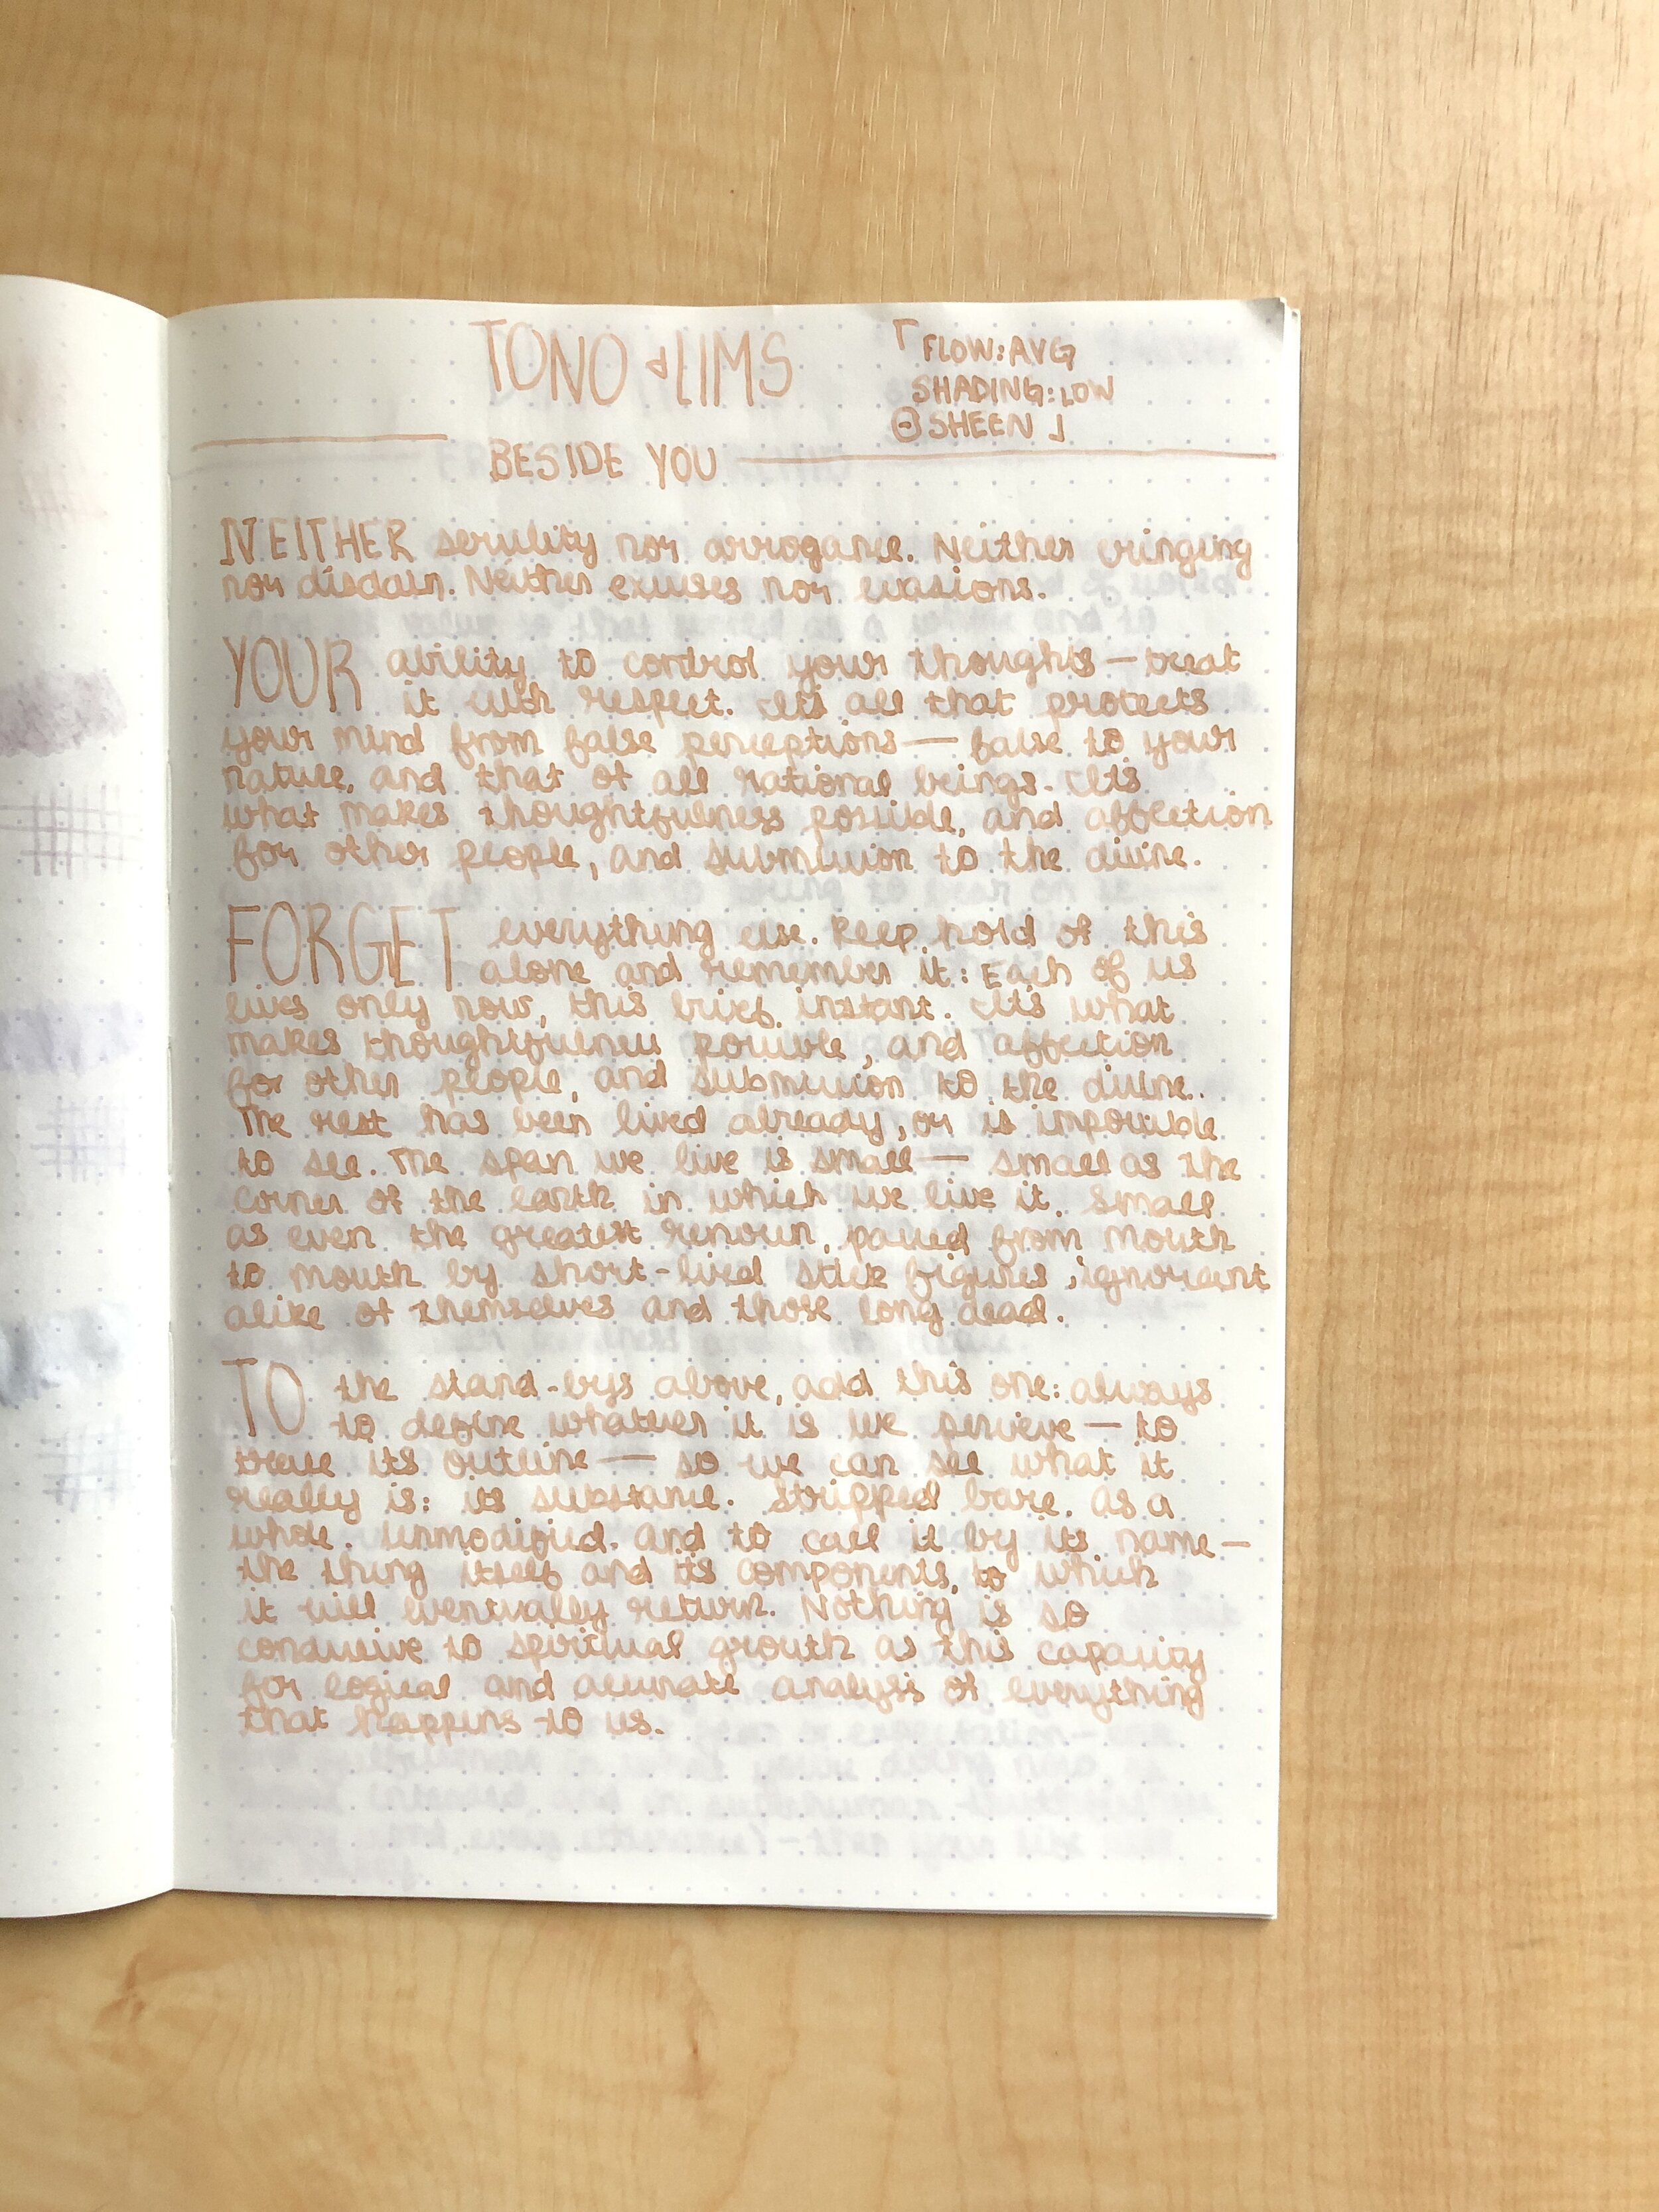 TONO & LIMS
「FLOW: AVG
SHADING: LOW
⊖ SHEEN」
BESIDE YOU
NEITHER servility nor arrogance. Neither cringing
nor disdain. Neither excuses nor evasions.
YOUR ability to control your thoughts — treat
it with respect. It's all that protects
your mind from false perceptions — false to your
nature, and that of all rational beings. It's
what makes thoughtfulness possible, and affection
for other people, and submission to the divine.
FORGET everything else. Keep hold of this
alone and remember it: Each of us
lives only now, this brief instant. It's what
makes thoughtfulness possible, and affection
for other people, and submission to the divine.
The rest has been lived already, or is impossible
to see. The span we live is small — small as the
corner of the earth in which we live it. Small
as even the greatest renown, passed from mouth
to mouth by short-lived stick figures, ignorant
alike of themselves and those long dead.
TO the stand-bys above, add this one: always
to define whatever it is we perceive — to
trace its outline — so we can see what it
really is: its substance. Stripped bare. As a
whole. Unmodified. And to call it by its name —
the thing itself and its components, to which
it will eventually return. Nothing is so
conducive to spiritual growth as this capacity
for logical and accurate analysis of everything
that happens to us.